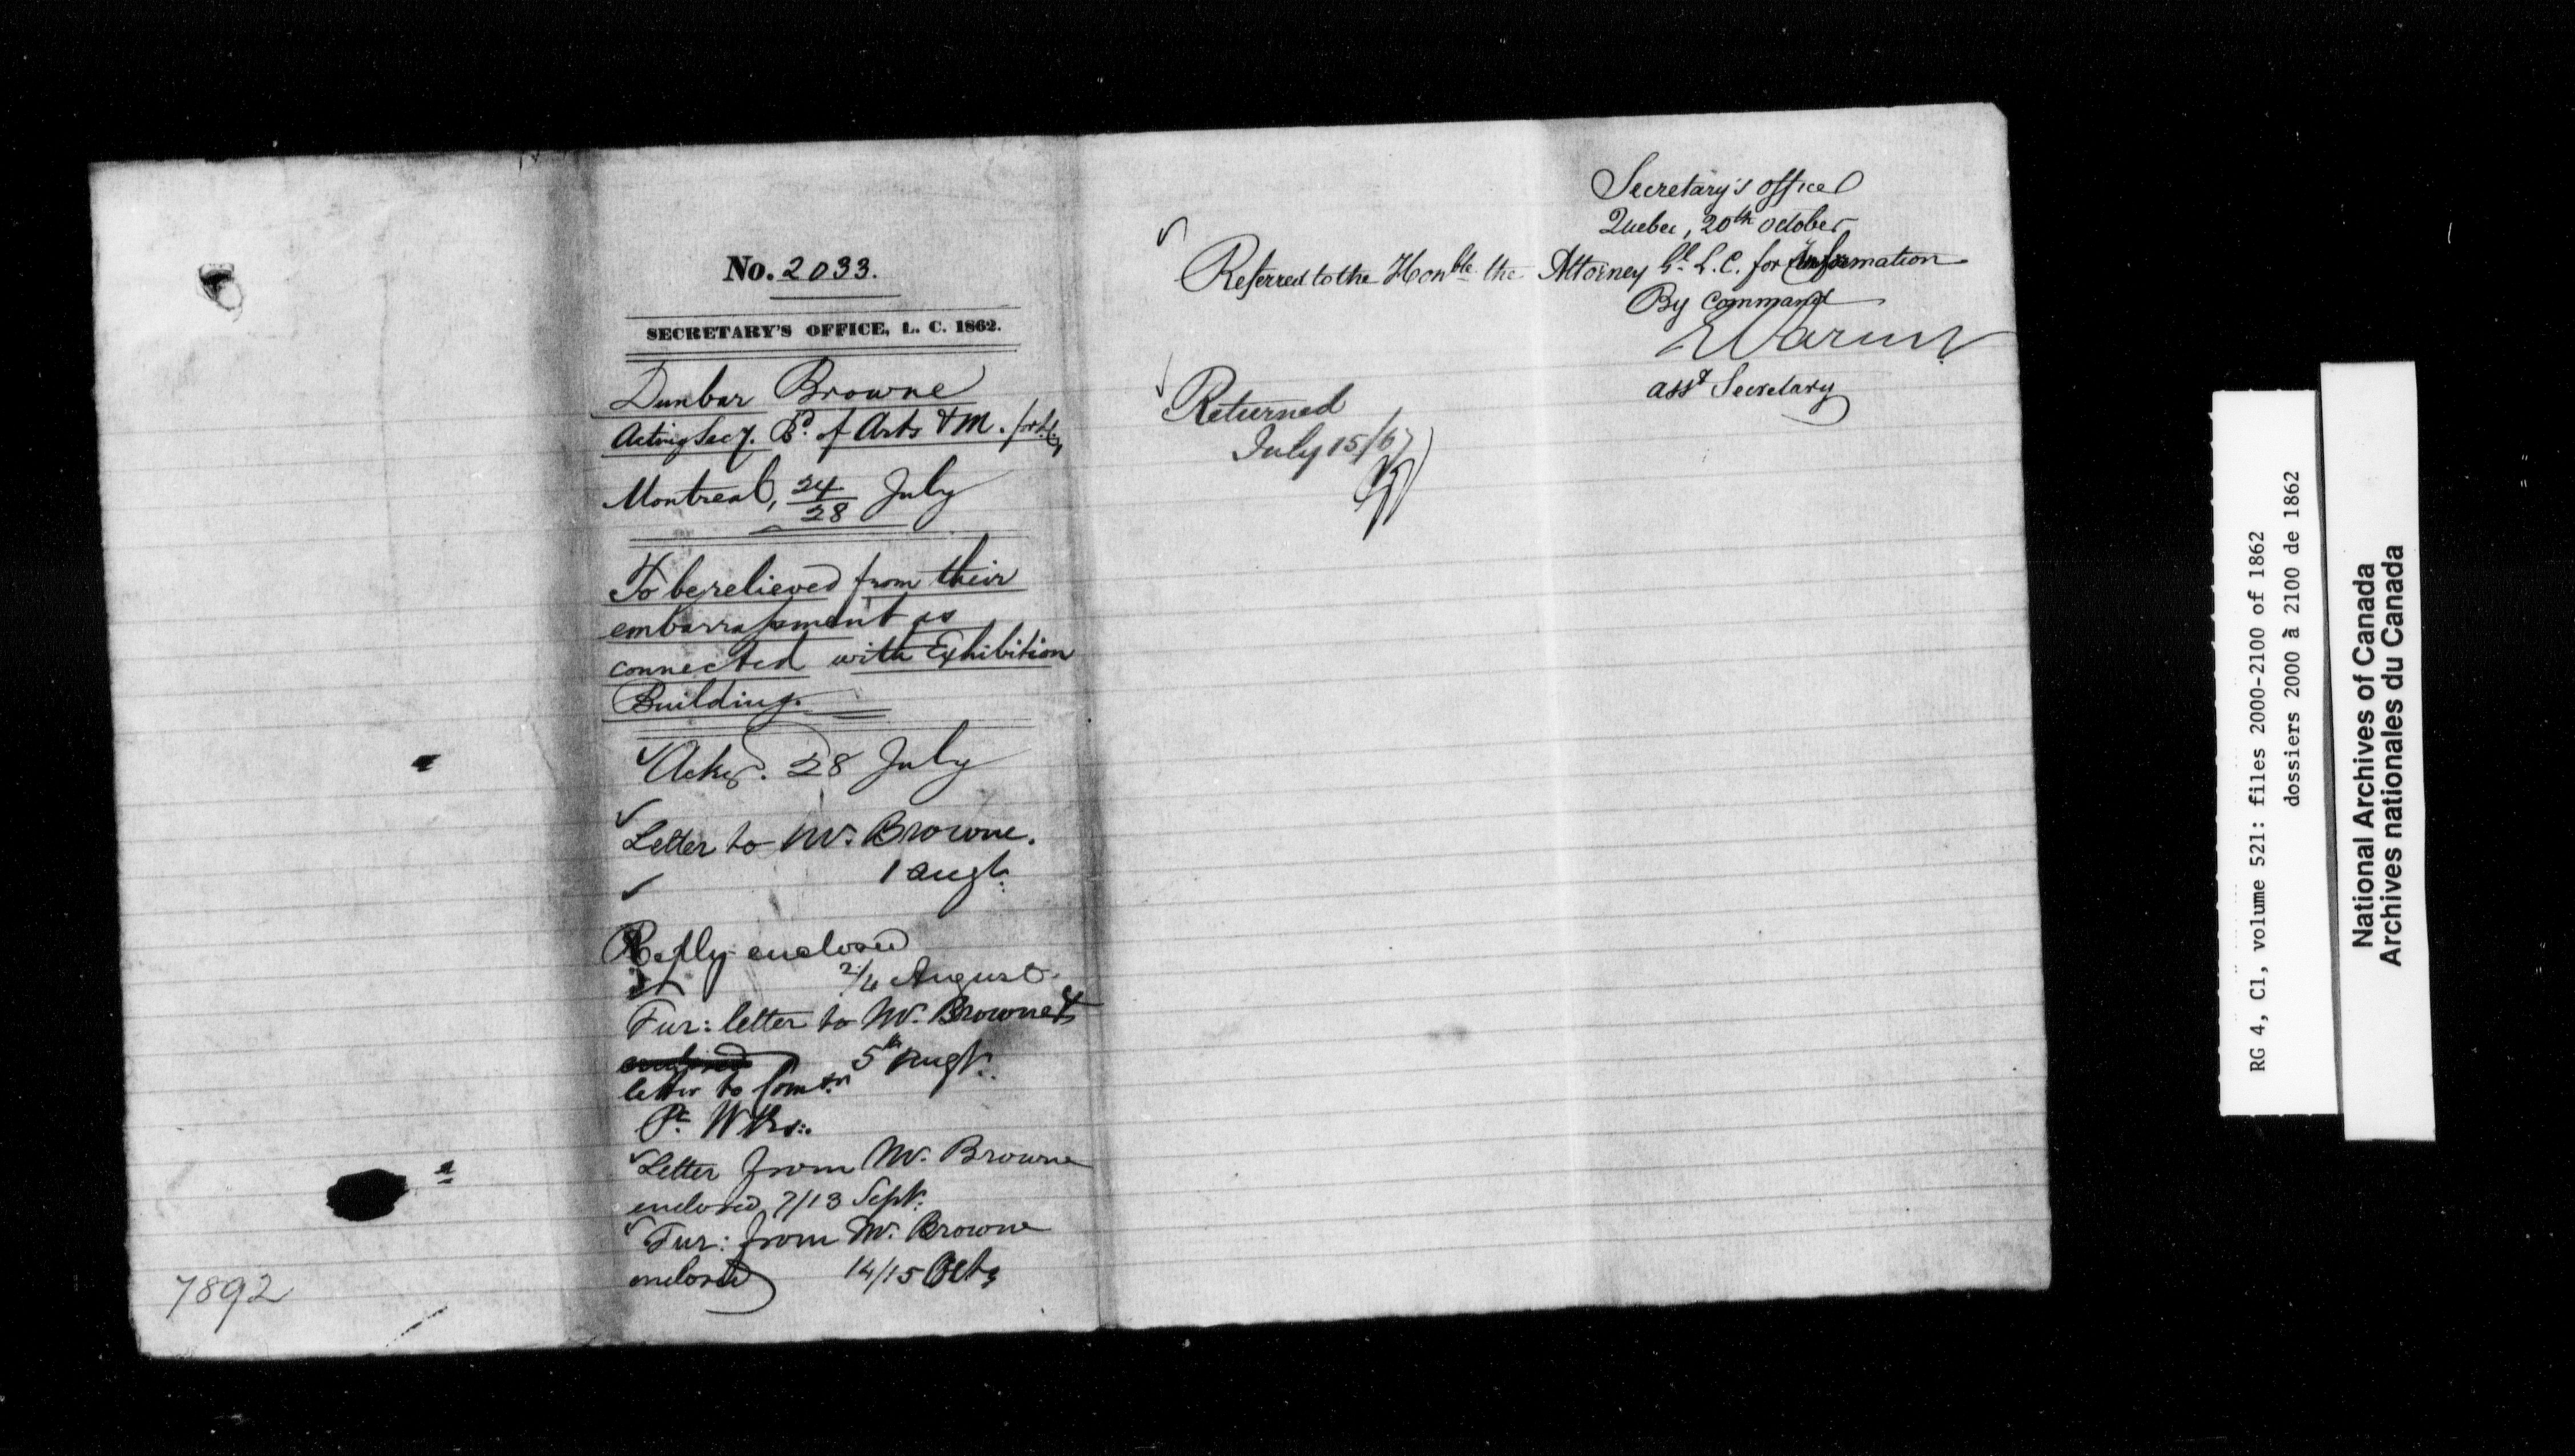 No. 2033.
SECRETARY'S OFFICE, L. C. 1862.
Dunbar Browne
Acting Secy. Bd. of Arts & M. for L.C.
Montreal, 24/28 July
To be relieved from their
embarrassment as
connected with Exhibition
Building.
Ackd. 28 July
Letter to Mr. Browne.
1 Augt.
Reply enclosed
2/4 August
Fur: letter to Mr. Browne &
5th Augt.
letter to Comr.
Pc. Wks:.
Letter from Mr. Browne
enclosed 7/13 Sept.
Fur: from Mr. Browne
enclosed 14/15 Oct.
7892
Secretary's office
Quebec, 20th October
Referred to the Honble the Attorney Gl. L. C. for Information
By Command
asst Secretary
Returned
July 15/67
RG 4, C1, volume 521: files 2000-2100 of 1862
dossiers 2000 à 2100 de 1862
National Archives of Canada
Archives nationales du Canada